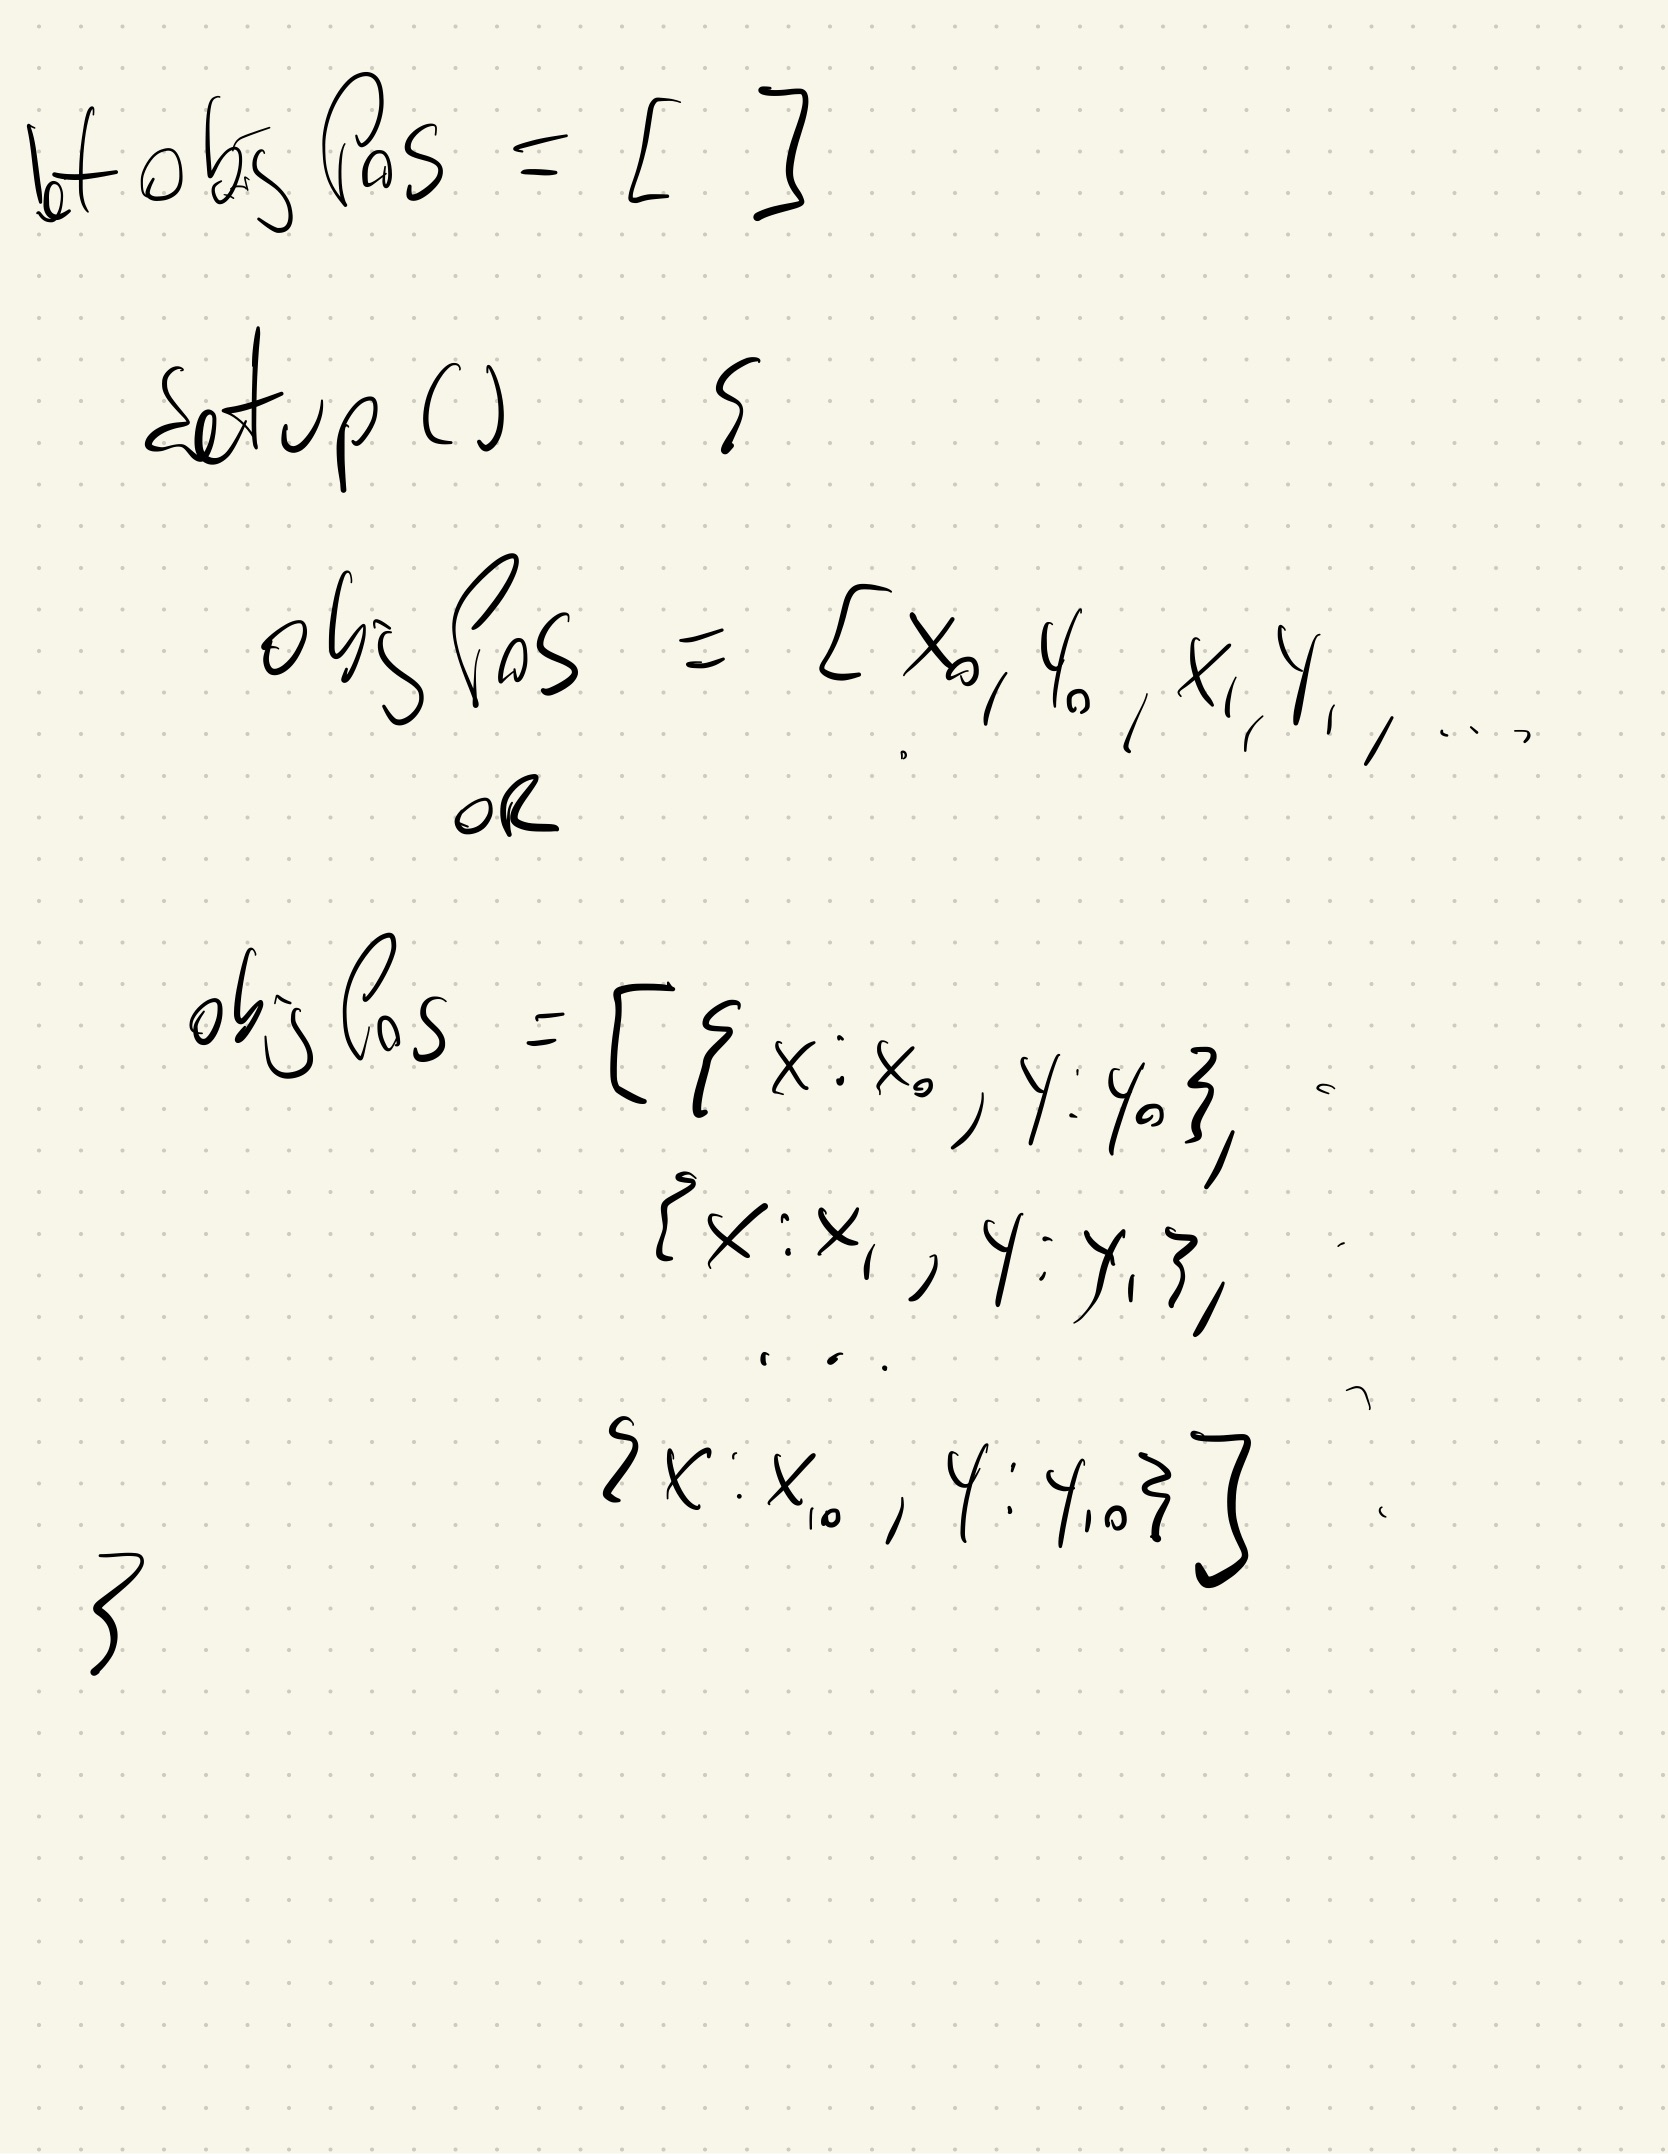 let objPos = [ ]
setup() {
objPos = [x₀, y₀, x₁, y₁, ...
OR
objPos = [{x: x₀, y: y₀},
{x: x₁, y: y₁},
...
{x: x₁₀, y: y₁₀}]
}